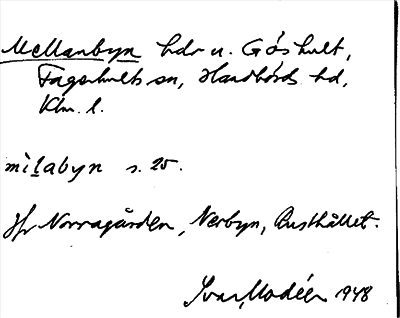 Mellanbyn hdr u. Gåshult,
Fagerhults sn, Handbörds hd,
Klm. l.
mìlabyn s. 25.
Jfr Norragården, Nerbyn, Rusthållet.
Ivar Modéer 1948